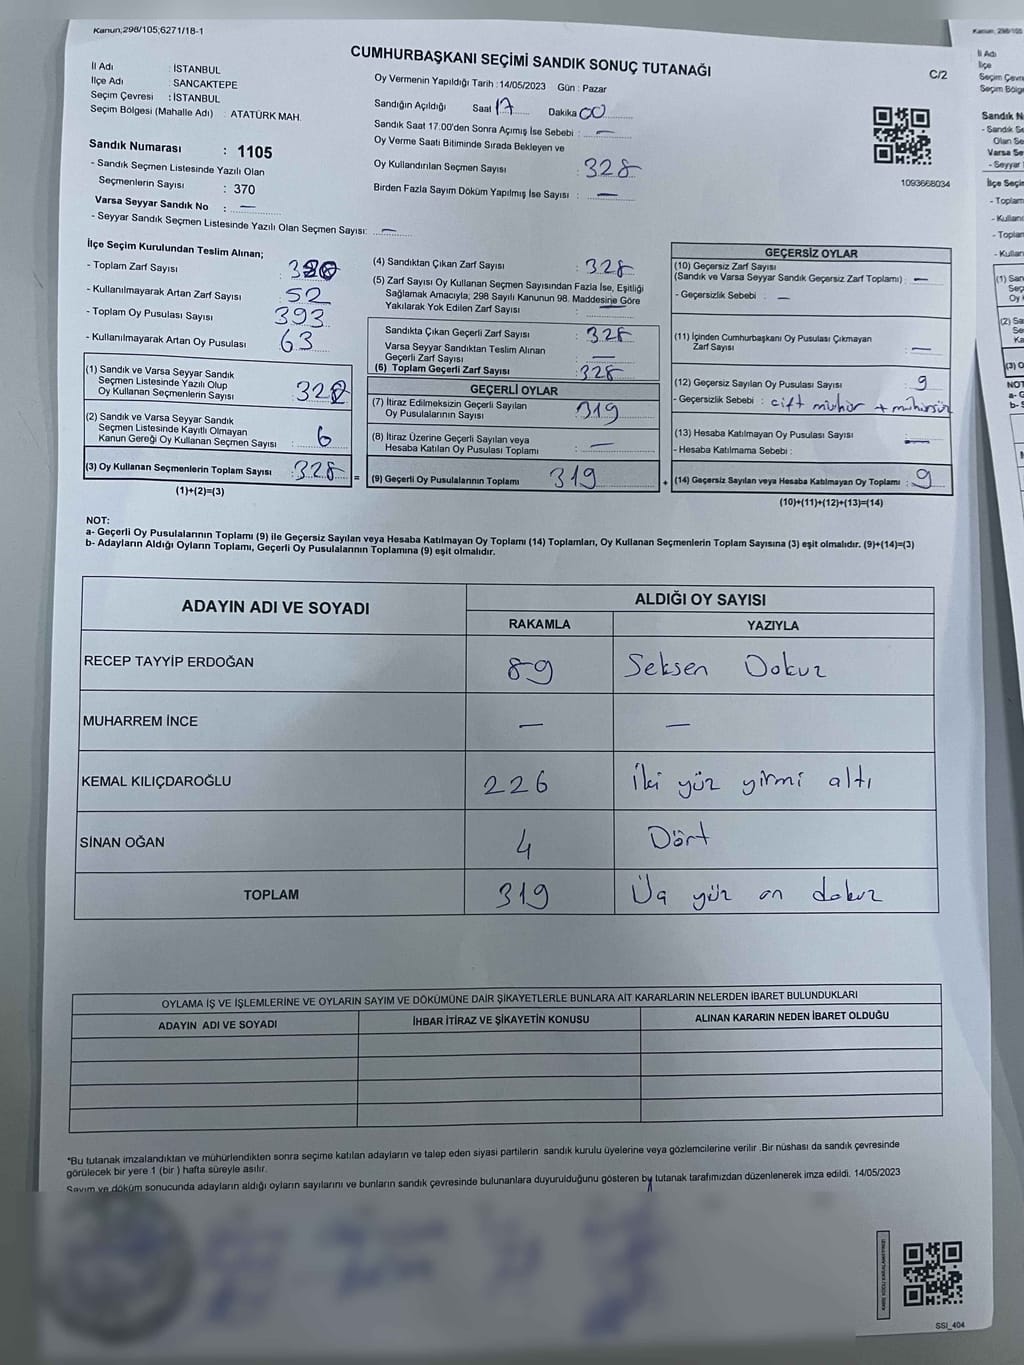 Kanun;298/105;6271/18-1
CUMHURBAŞKANI SEÇİMİ SANDIK SONUÇ TUTANAĞI
C/2
İl Adı : İSTANBUL
İlçe Adı : SANCAKTEPE
Seçim Çevresi : İSTANBUL
Seçim Bölgesi (Mahalle Adı) : ATATÜRK MAH.
Oy Vermenin Yapıldığı Tarih :14/05/2023 Gün : Pazar
Sandığın Açıldığı Saat 17 Dakika 00
Sandık Saat 17.00'den Sonra Açımış İse Sebebi : —
Oy Verme Saati Bitiminde Sırada Bekleyen ve
Oy Kullandırılan Seçmen Sayısı : 328
Birden Fazla Sayım Döküm Yapılmış İse Sayısı : —
1093668034
Sandık Numarası : 1105
- Sandık Seçmen Listesinde Yazılı Olan
Seçmenlerin Sayısı : 370
Varsa Seyyar Sandık No : —
- Seyyar Sandık Seçmen Listesinde Yazılı Olan Seçmen Sayısı: —
İlçe Seçim Kurulundan Teslim Alınan;
- Toplam Zarf Sayısı :
- Kullanılmayarak Artan Zarf Sayısı : 52
- Toplam Oy Pusulası Sayısı : 393
- Kullanılmayarak Artan Oy Pusulası : 63
(1) Sandık ve Varsa Seyyar Sandık
Seçmen Listesinde Yazılı Olup
Oy Kullanan Seçmenlerin Sayısı :
(2) Sandık ve Varsa Seyyar Sandık
Seçmen Listesinde Kayıtlı Olmayan
Kanun Gereği Oy Kullanan Seçmen Sayısı : 6
(3) Oy Kullanan Seçmenlerin Toplam Sayısı : 328
(1)+(2)=(3)
(4) Sandıktan Çıkan Zarf Sayısı : 328
(5) Zarf Sayısı Oy Kullanan Seçmen Sayısından Fazla İse, Eşitliği
Sağlamak Amacıyla; 298 Sayılı Kanunun 98. Maddesine Göre
Yakılarak Yok Edilen Zarf Sayısı : —
Sandıkta Çıkan Geçerli Zarf Sayısı : 328
Varsa Seyyar Sandıktan Teslim Alınan
Geçerli Zarf Sayısı : —
(6) Toplam Geçerli Zarf Sayısı : 328
GEÇERLİ OYLAR
(7) İtiraz Edilmeksizin Geçerli Sayılan
Oy Pusulalarının Sayısı : 319
(8) İtiraz Üzerine Geçerli Sayılan veya
Hesaba Katılan Oy Pusulası Toplamı : —
= (9) Geçerli Oy Pusulalarının Toplamı : 319
GEÇERSİZ OYLAR
(10) Geçersiz Zarf Sayısı
(Sandık ve Varsa Seyyar Sandık Geçersiz Zarf Toplamı) : —
- Geçersizlik Sebebi : —
(11) İçinden Cumhurbaşkanı Oy Pusulası Çıkmayan
Zarf Sayısı : —
(12) Geçersiz Sayılan Oy Pusulası Sayısı : 9
- Geçersizlik Sebebi : çift mühür + mühürsüz
(13) Hesaba Katılmayan Oy Pusulası Sayısı : —
- Hesaba Katılmama Sebebi :
+ (14) Geçersiz Sayılan veya Hesaba Katılmayan Oy Toplamı : 9
(10)+(11)+(12)+(13)=(14)
NOT:
a- Geçerli Oy Pusulalarının Toplamı (9) ile Geçersiz Sayılan veya Hesaba Katılmayan Oy Toplamı (14) Toplamları, Oy Kullanan Seçmenlerin Toplam Sayısına (3) eşit olmalıdır. (9)+(14)=(3)
b- Adayların Aldığı Oyların Toplamı, Geçerli Oy Pusulalarının Toplamına (9) eşit olmalıdır.
ADAYIN ADI VE SOYADI ALDIĞI OY SAYISI
RAKAMLA YAZIYLA
RECEP TAYYİP ERDOĞAN 89 Seksen Dokuz
MUHARREM İNCE — —
KEMAL KILIÇDAROĞLU 226 İki yüz yirmi altı
SİNAN OĞAN 4 Dört
TOPLAM 319 Üç yüz on dokuz
OYLAMA İŞ VE İŞLEMLERİNE VE OYLARIN SAYIM VE DÖKÜMÜNE DAİR ŞİKAYETLERLE BUNLARA AİT KARARLARIN NELERDEN İBARET BULUNDUKLARI
ADAYIN ADI VE SOYADI İHBAR İTİRAZ VE ŞİKAYETİN KONUSU ALINAN KARARIN NEDEN İBARET OLDUĞU
*Bu tutanak imzalandıktan ve mühürlendikten sonra seçime katılan adayların ve talep eden siyasi partilerin sandık kurulu üyelerine veya gözlemcilerine verilir .Bir nüshası da sandık çevresinde
görülecek bir yere 1 (bir ) hafta süreyle asılır.
Sayım ve döküm sonucunda adayların aldığı oyların sayılarını ve bunların sandık çevresinde bulunanlara duyurulduğunu gösteren bu tutanak tarafımızdan düzenlenerek imza edildi. 14/05/2023
SSI_404